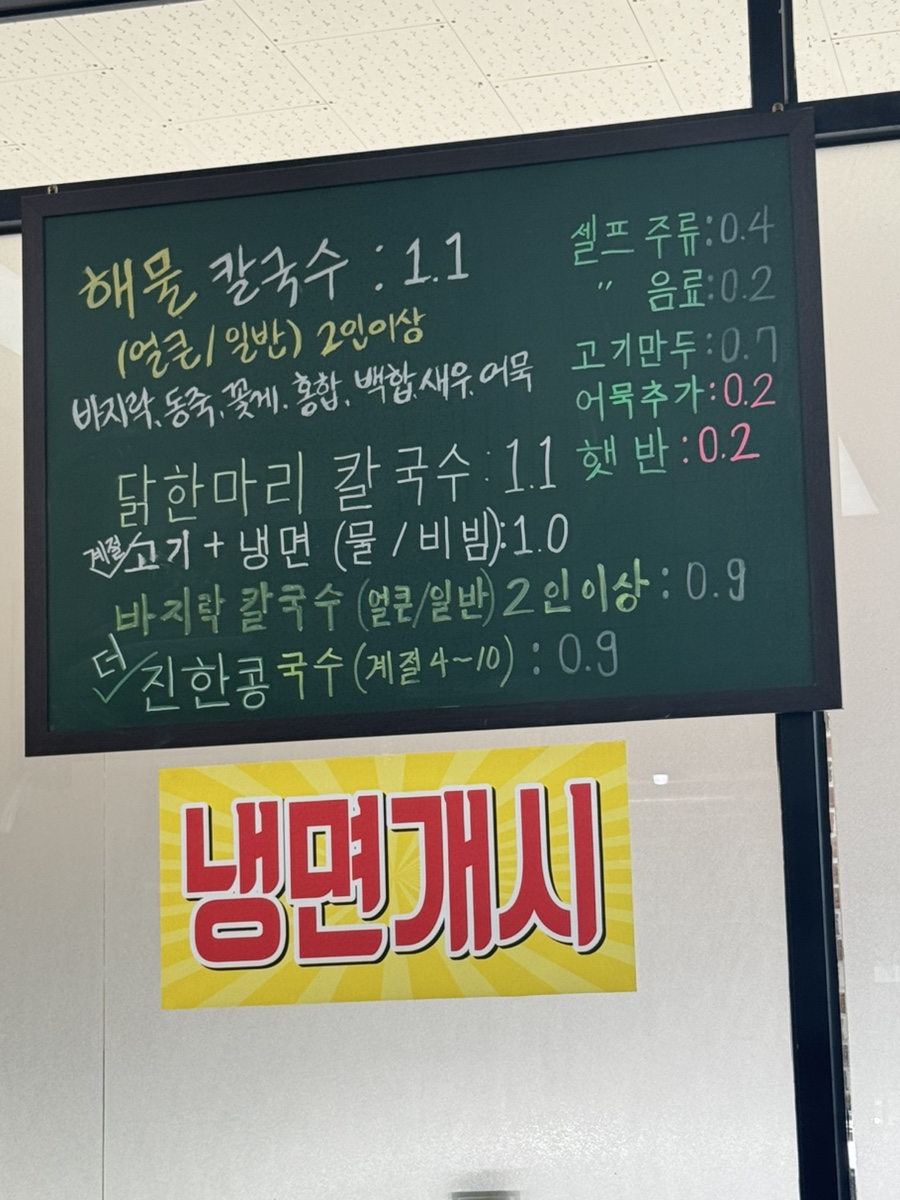 해물 칼국수 : 1.1
(얼큰/일반) 2인이상
바지락, 동죽, 꽃게, 홍합, 백합, 새우, 어묵
닭한마리 칼국수 : 1.1
계절 고기 + 냉면 (물/비빔) : 1.0
바지락 칼국수 (얼큰/일반) 2인이상 : 0.9
더 진한콩국수 (계절 4~10) : 0.9
셀프 주류 : 0.4
〃 음료 : 0.2
고기만두 : 0.7
어묵추가 : 0.2
햇반 : 0.2
냉면개시